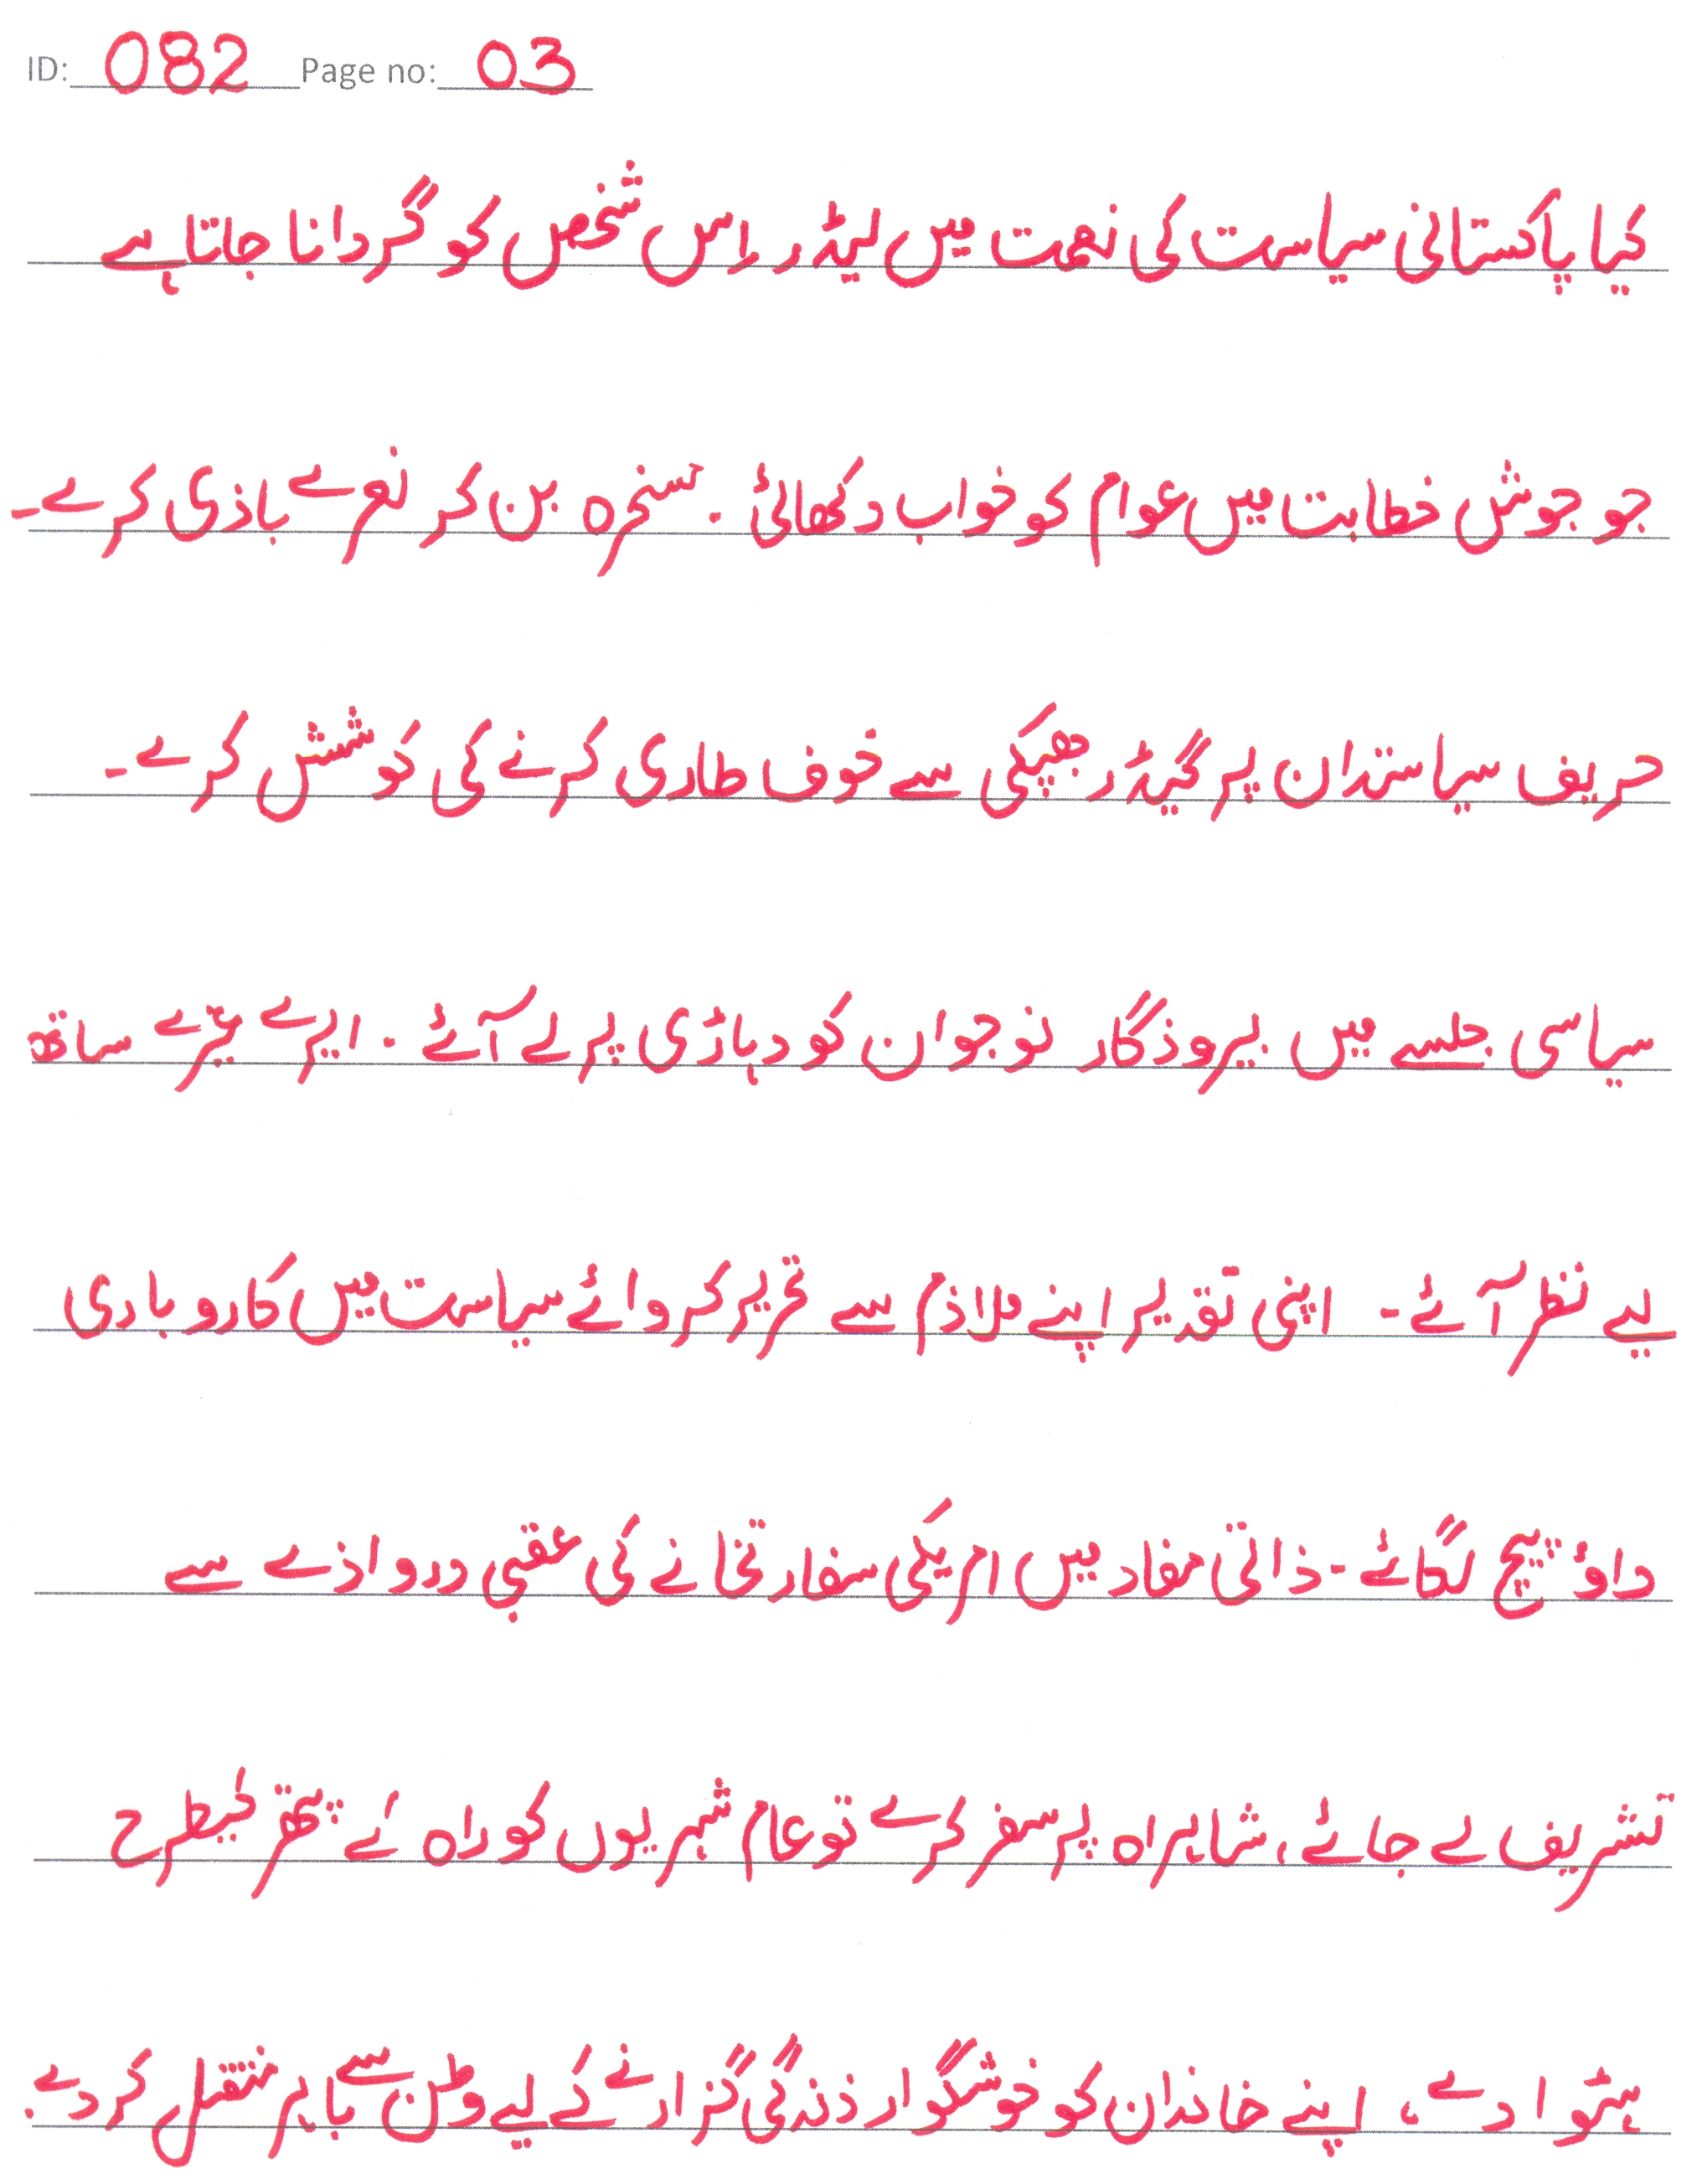 ID: 082 Page no: 03
کیا پاکستانی سیاست کی نعمت میں لیڈر اس شخص کو گردانا جاتا ہے
جو جوش خطابت میں عوام کو خواب دکھائی ۔ مسخرہ بن کر نعرے بازی کرے۔
حریف سیاستدان پر گیڈر جھپکی سے خوف طاری کرنے کی کوشش کرے۔
سیاسی جلسے میں بیروزگار نوجوان کو دہاڑی پر لے آئے ۔ ایرے غیرے ساتھ
لیے نظر آئے۔ اپنی تقدیر اپنے ملازم سے تحریر کروائے سیاست میں کاروباری
داؤ پیچ لگائے۔ ذاتی مفاد میں امریکی سفارتخانے کی عقبی دروازے سے
تشریف لے جائے، شاہراہ پر سفر کرے تو عام شہریوں کو راہ کے پتھر کیطرح
ہٹوا دے، اپنے خاندان کو خوشگوار زندگی گزارنے کے لیے وطن سے باہر منتقل کر دے۔